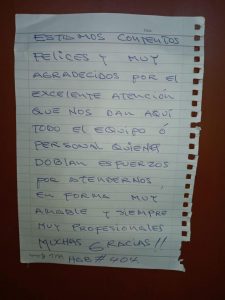 ESTAMOS CONTENTOS
FELICES Y MUY
AGRADECIDOS POR EL
EXCELENTE ATENCIÓN
QUE NOS DAN AQUÍ
TODO EL EQUIPO Ó
PERSONAL QUIENES
DOBLAN ESFUERZOS
POR ATENDERNOS,
EN FORMA MUY
AMABLE Y SIEMPRE
MUY PROFESIONALES
MUCHAS GRACIAS!!
HAB # 404